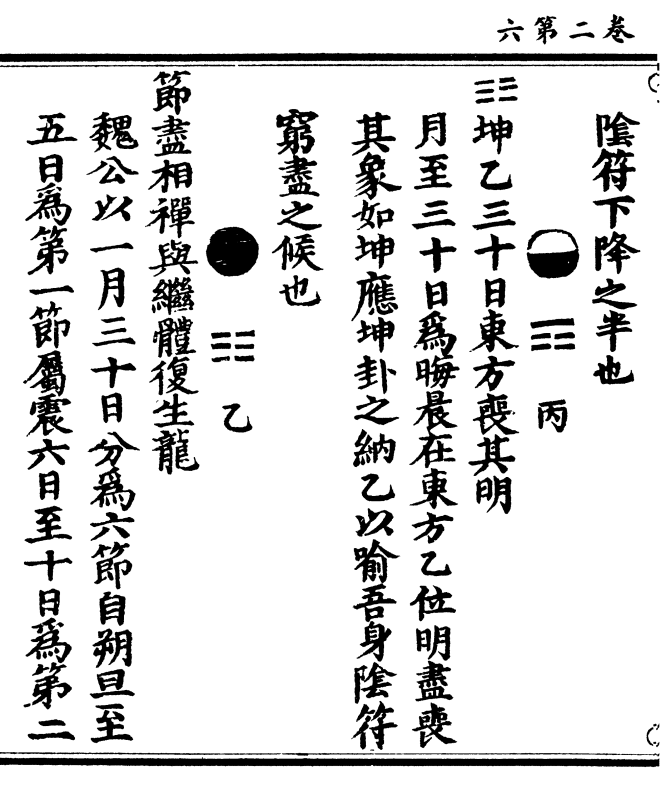 六第二巻
陰符下降之半也
丙
☷坤乙三十日東方喪其明
月至三十日為晦晨在東方乙位明盡喪
其象如坤應坤卦之納乙以喻吾身陰符
窮盡之候也
乙
節盡相禪與繼體復生龍
魏公以一月三十日分為六節自朔旦至
五日為第一節屬震六日至十日為第二